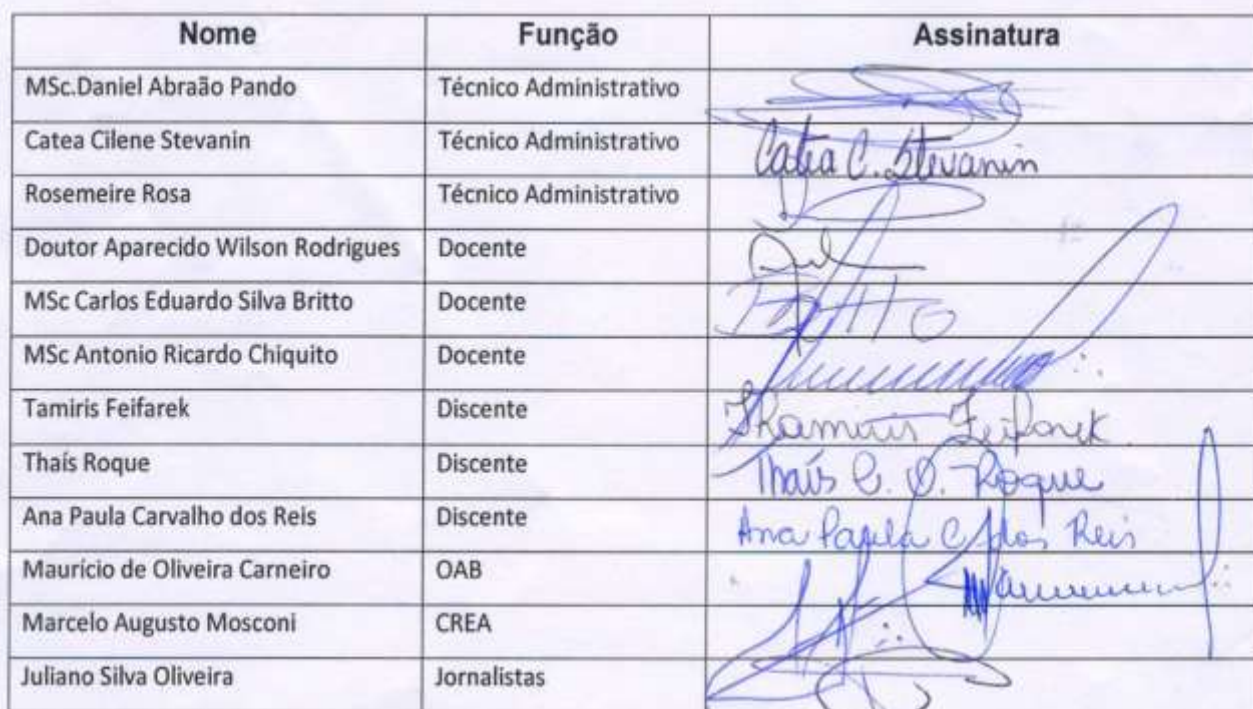 Nome Função Assinatura
MSc.Daniel Abraão Pando Técnico Administrativo
Catea Cilene Stevanin Técnico Administrativo Catea C. Stevanin
Rosemeire Rosa Técnico Administrativo
Doutor Aparecido Wilson Rodrigues Docente
MSc Carlos Eduardo Silva Britto Docente
MSc Antonio Ricardo Chiquito Docente
Tamiris Feifarek Discente Feifarek
Thaís Roque Discente Thaís C. O. Roque
Ana Paula Carvalho dos Reis Discente Ana Paula C. dos Reis
Maurício de Oliveira Carneiro OAB
Marcelo Augusto Mosconi CREA
Juliano Silva Oliveira Jornalistas